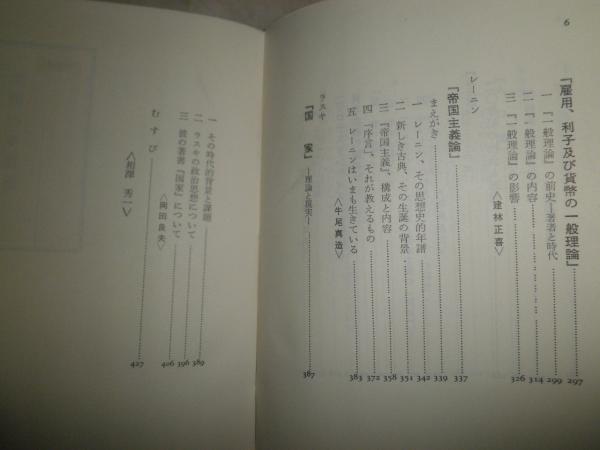 6
『雇用、利子及び貨幣の一般理論』……297
一 『一般理論』の前史―著者と時代……299
二 『一般理論』の内容……314
三 『一般理論』の影響……326
〈建林正喜〉
レーニン
『帝国主義論』……337
まえがき……339
一 レーニン、その思想史的年譜……342
二 新しき古典、その生誕の背景……351
三 『帝国主義』、構成と内容……358
四 「序言」、それが教えるもの……372
五 レーニンはいまも生きている……383
〈牛尾真造〉
ラスキ
『国家』―理論と現実―……387
一 その時代的背景と課題……389
二 ラスキの政治思想について……396
三 彼の著書『国家』について……406
〈岡田良夫〉
むすび……427
〈相澤秀一〉